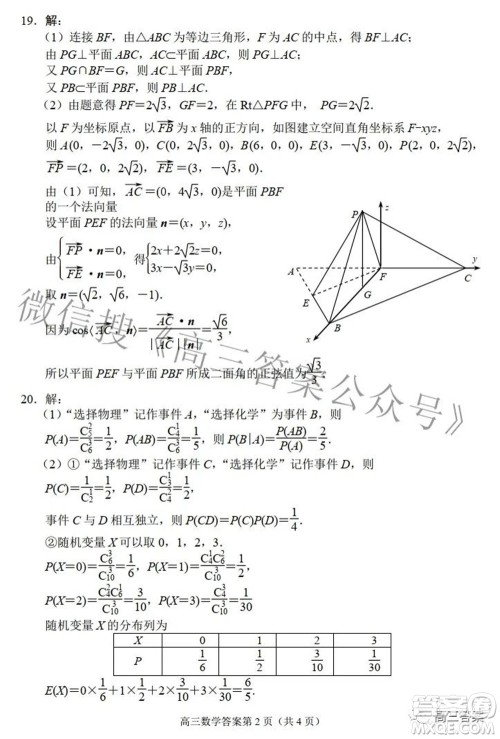 19. 解:
(1) 连接 BF,由△ABC 为等边三角形,F 为 AC 的中点,得 BF⊥AC;
由 PG⊥平面 ABC,AC⊂平面 ABC,则 PG⊥AC;
又 PG∩BF=G,则 AC⊥平面 PBF,
又 PB⊂平面 PBF,则 PB⊥AC.
(2) 由题意得 PF=2√3,GF=2,在 Rt△PFG 中, PG=2√2.
以 F 为坐标原点,以 FB 为 x 轴的正方向,如图建立空间直角坐标系 F-xyz,
则 A(0,-2√3,0),C(0,2√3,0),B(6,0,0),E(3,-√3,0),P(2,0,2√2),
FP=(2,0,2√2),FE=(3,-√3,0);
由(1)可知,AC=(0,4√3,0)是平面 PBF
的一个法向量
设平面 PEF 的法向量 n=(x,y,z),
由{FP·n=0, FE·n=0, 得{2x+2√2z=0, 3x-√3y=0
取 n=(√2,√6,-1).
因为 cos⟨AC,n⟩=AC·n/|AC||n|=√6/3,
所以平面 PEF 与平面 PBF 所成二面角的正弦值为√3/3.
P z A F y C E G B x
20. 解:
(1)“选择物理”记作事件 A,“选择化学”为事件 B,则
P(A)=C₅²/C₆³=1/2,P(AB)=C₄¹/C₆³=1/5,则 P(B|A)=P(AB)/P(A)=2/5.
(2) ①“选择物理”记作事件 C,“选择化学”记作事件 D,则
P(C)=1/C₂¹=1/2,P(D)=C₃¹/C₄²=1/2,
事件 C 与 D 相互独立,则 P(CD)=P(C)P(D)=1/4.
②随机变量 X 可以取 0,1,2,3.
P(X=0)=C₆³/C₁₀³=1/6,P(X=1)=C₄¹C₆²/C₁₀³=1/2,
P(X=2)=C₄²C₆¹/C₁₀³=3/10,P(X=3)=C₄³/C₁₀³=1/30
随机变量 X 的分布列为
X 0 1 2 3
P 1/6 1/2 3/10 1/30
E(X)=0×1/6+1×1/2+2×3/10+3×1/30
高三数学答案第 2 页(共 4 页)
微信搜《高三答案公众号》
高三答案